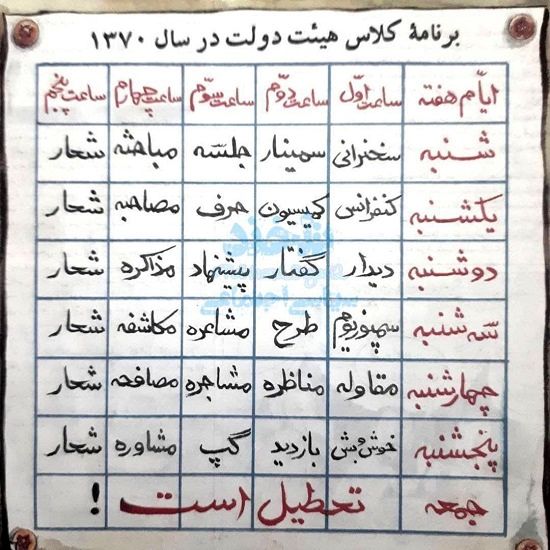 برنامهٔ کلاس هیئت دولت در سال ۱۳۷۰
ایّام هفته ساعت اوّل ساعت دوّم ساعت سوّم ساعت چهارم ساعت پنجم
شنبه سخنرانی سمینار جلسه مباحثه شعار
یکشنبه کنفرانس کمیسیون حرف مصاحبه شعار
دوشنبه دیدار گفتار پیشنهاد مذاکره شعار
سه شنبه سمپوزیوم طرح مشاعره مکاشفه شعار
چهارشنبه مقاوله مناظره مشاجره مصافحه شعار
پنجشنبه خوش و بش بازدید گپ مشاوره شعار
جمعه تعطیل است !